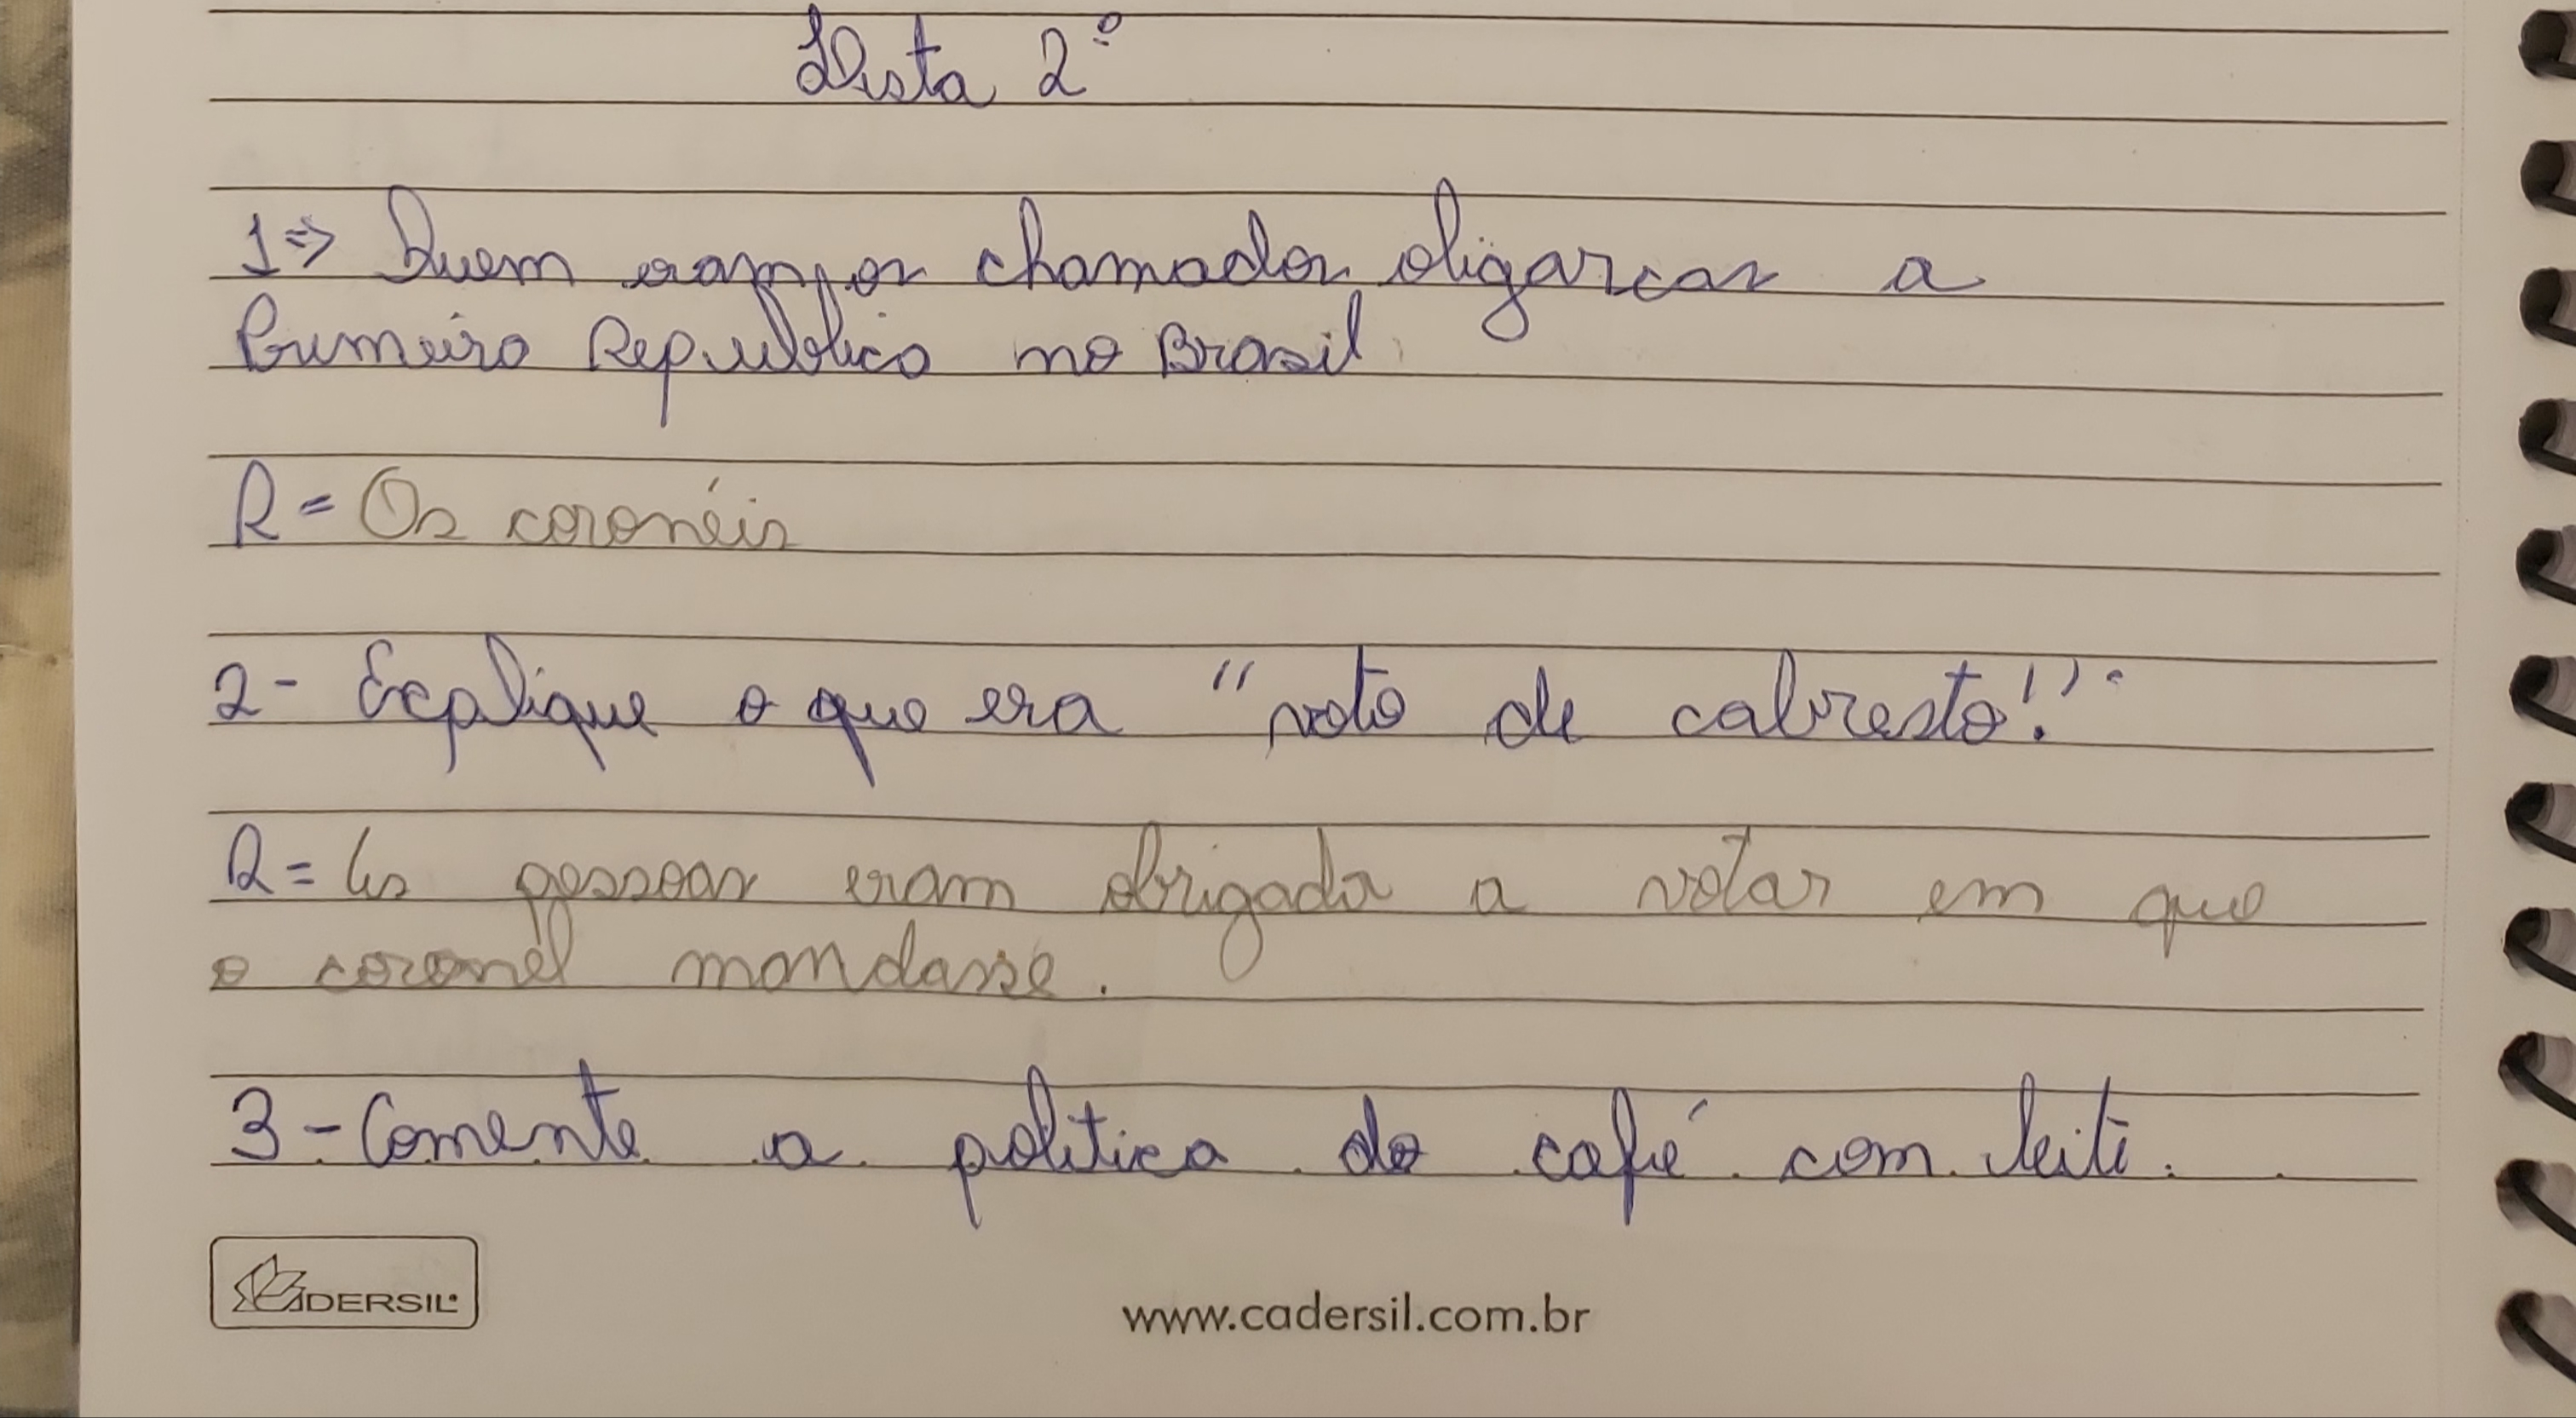 Lista 2º
1⇒ Quem eram os chamados oligarcas a
Primeira Republica no Brasil.
R = Os coronéis
2- Explique o que era "voto de cabresto!".
R = As pessoas eram obrigada a votar em que
o coronel mandasse.
3 - Comente a politica do café com leite.
CADERSIL
www.cadersil.com.br